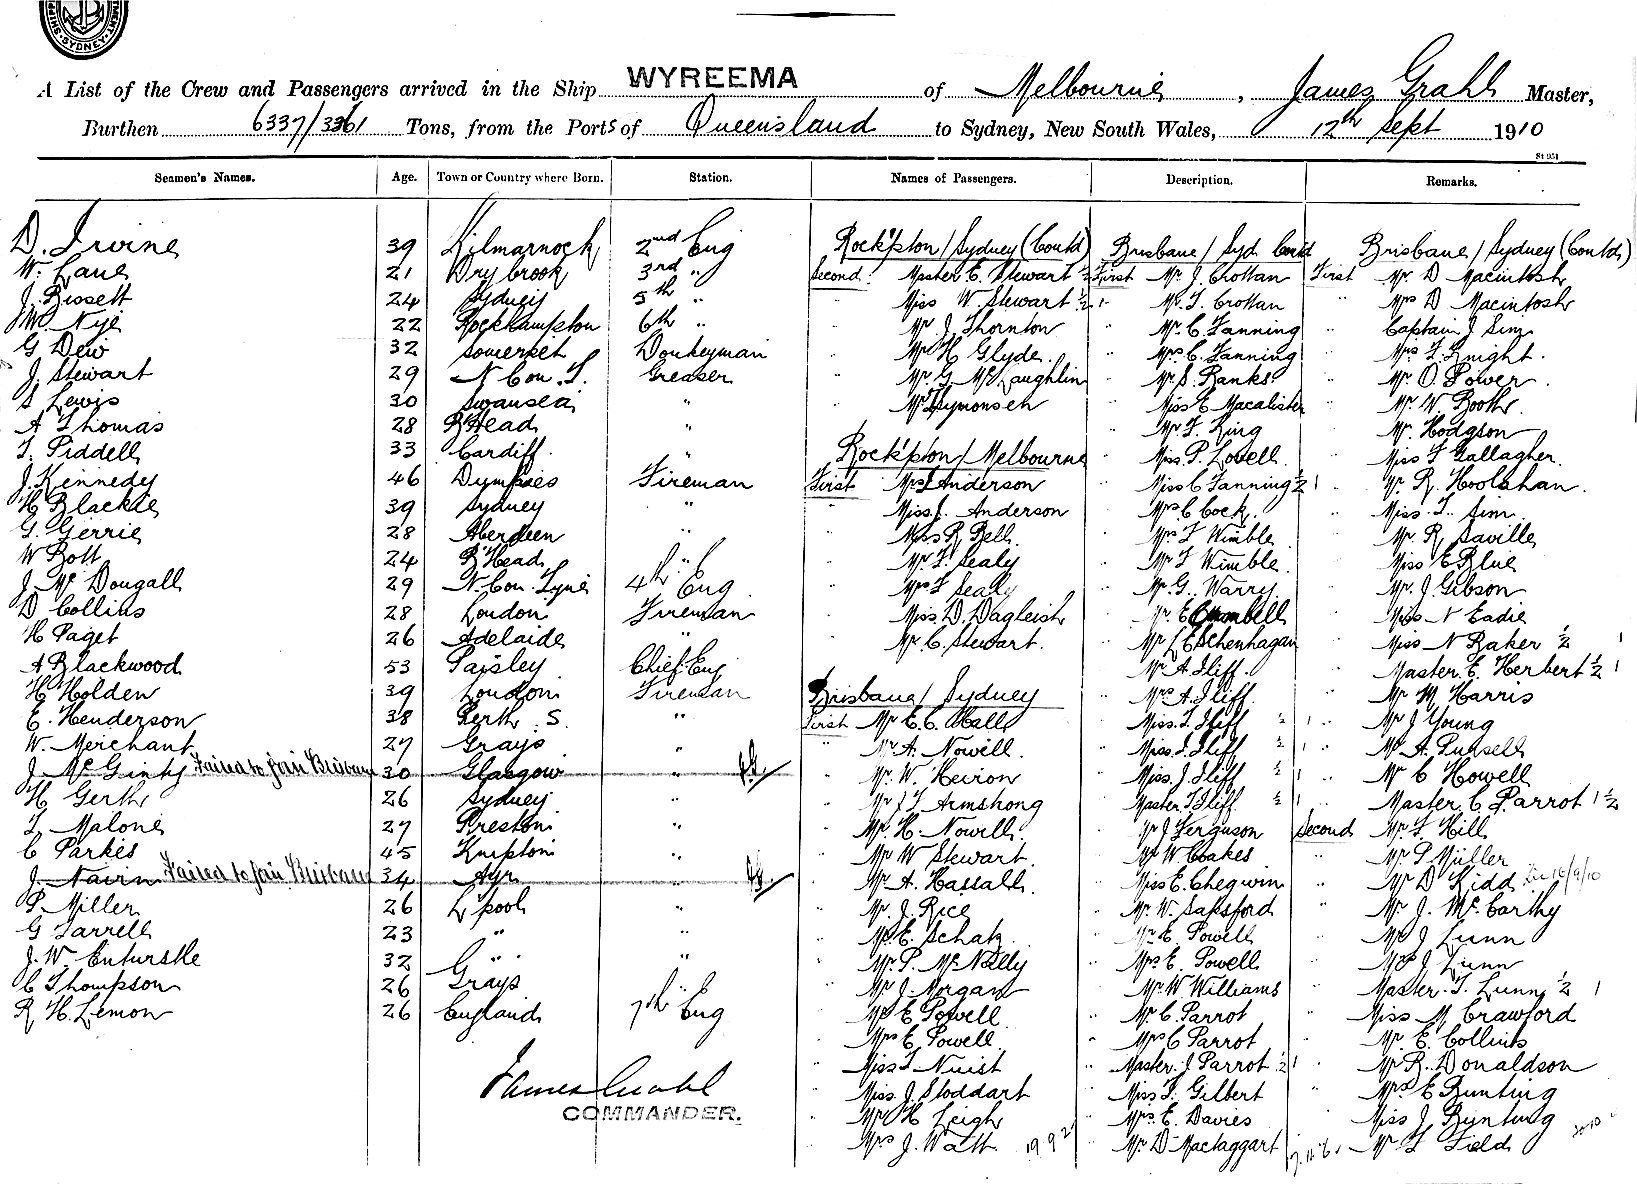 SYDNEY
A List of the Crew and Passengers arrived in the Ship WYREEMA of Melbourne, James Grahl Master,
Burthen 6337/3361 Tons, from the Ports of Queensland to Sydney, New South Wales, 12th Sept 1910
St 951
Seamen's Names. Age. Town or Country where Born. Station. Names of Passengers. Description. Remarks.
D. Irvine 39 Kilmarnock 2nd Eng Rock'pton/Sydney (Contd) Brisbane/Syd Contd Brisbane/Sydney (Contd)
W. Lane 21 Drybrook 3rd " Second. Master E. Stewart ½ First Mr. J. Crottan First Mr D Macintosh
J. Bissett 24 Sydney 5th " Miss W. Stewart ½ 1 " Mr. T. Crottan " Mrs D Macintosh
J.W. Nye 22 Rockhampton 6th " " Mr J. Thornton " Mr. C. Fanning " Captain J Sim
G Dew 32 Somerset Donkeyman " Mr H Glyde. " Mrs C. Fanning " Mrs F. Knight.
J. Stewart 29 N Con. T. Greaser " Mr. G McLaughlin " Mr. S. Banks. " Mr. O. Power.
S Lewis 30 Swansea " " Mr Symonsen " Miss E Macalister " Mr. W. Booth.
A Thomas 28 B'Head " " Mr F. King " Mr. Hodgson
T. Piddell 33 Cardiff. " Rock'pton/Melbourne " Miss P. Lovell. " Miss F Gallagher.
J. Kennedy 46 Dumfries Fireman First Mrs Anderson " Miss C Fanning ½ 1 " Mr. R. Hoolahan.
H Blackie 39 Sydney " " Miss. Anderson " Mrs C Cock. " Miss. Sim
G. Gerrie 28 Aberdeen " " Miss R. Bell. " Mrs F Wimble. " Mr R. Saville
W Bott 24 B'Head " " Mr. F. Sealy " Mr F Wimble. " Miss E Blue
J. McDougall 29 N. Con. Tyne 4th Eng " Mrs F Sealy " Mr. G. Warry. " Mr. J. Gibson
D Collins 28 London Fireman " Miss D. Dagleish " Mr. E " Miss N Eadie
H Paget 26 Adelaide " " Mr. C. Stewart. " Mr L Eschenhagan " Miss N Baker ½ 1
A Blackwood 53 Paisley Chief Eng " Mr A. Iliff. " Master E. Herbert ½ 1
H Holden 39 London Fireman Brisbane/Sydney " Mrs A. Iliff. " Mr M. Harris
E. Henderson 38 Perth S. " First Mr E. C. Hall " Miss. Iliff ½ 1 " Mr J Young
W. Merchant 27 Grays " " Mr A. Nowill. " Miss. Iliff. ½ 1 " Mr A. Punsell
J McGinty Failed to join Brisbane 30 Glasgow " " Mr. W. Heiron " Miss. J. Iliff ½ 1 " Mr C Howell
H Gerth 26 Sydney " " Mr J T Armstrong " Master. T. Iliff ½ 1 " Master. C Parrot 1 ½
T. Malone 27 Preston " " Mr. H. Nowill. " Mr J Ferguson Second Mr. F. Hill
C Parkes 45 Knipton " " Mr W Stewart. " Mr W Coakes " Mr. P Müller
J. Nairn Failed to join Brisbane 34 Ayr " " Mr. A. Hassall. " Miss E. Chegwin " Mr D Kidd 16/9/10
P. Miller 26 L'pool " " Mr. J. Rice " Mr. W. Sapsford " Mr J. McCarthy
G Farrell 23 " " " Mr. E. Schatz " Mr E. Powell " Mr J Lunn
J. W. 32 " " " Mr. P. McNally " Mrs E. Powell " Mrs J Lunn
C Thompson 26 Grays " " Mr. J. Morgan " Mr W Williams " Master. T. Lunn ½ 1
R H. Lemon 26 England 7th Eng " Mr E Powell " Mr C Parrot " Miss M Crawford
" Mrs E. Powell. " Mrs C Parrot " Mr. E. Collins
" Miss Nuist " Master. J. Parrot ½ 1 " Mr R. Donaldson
James Grahl " Miss. J. Stoddart " Miss. Gilbert " Mrs E Bunting
COMMANDER. " Mr H. Leigh " Mrs. E. Davies " Miss J Bunting
" Mrs J. Watt " Mr. D Mactaggart " Mr F Field